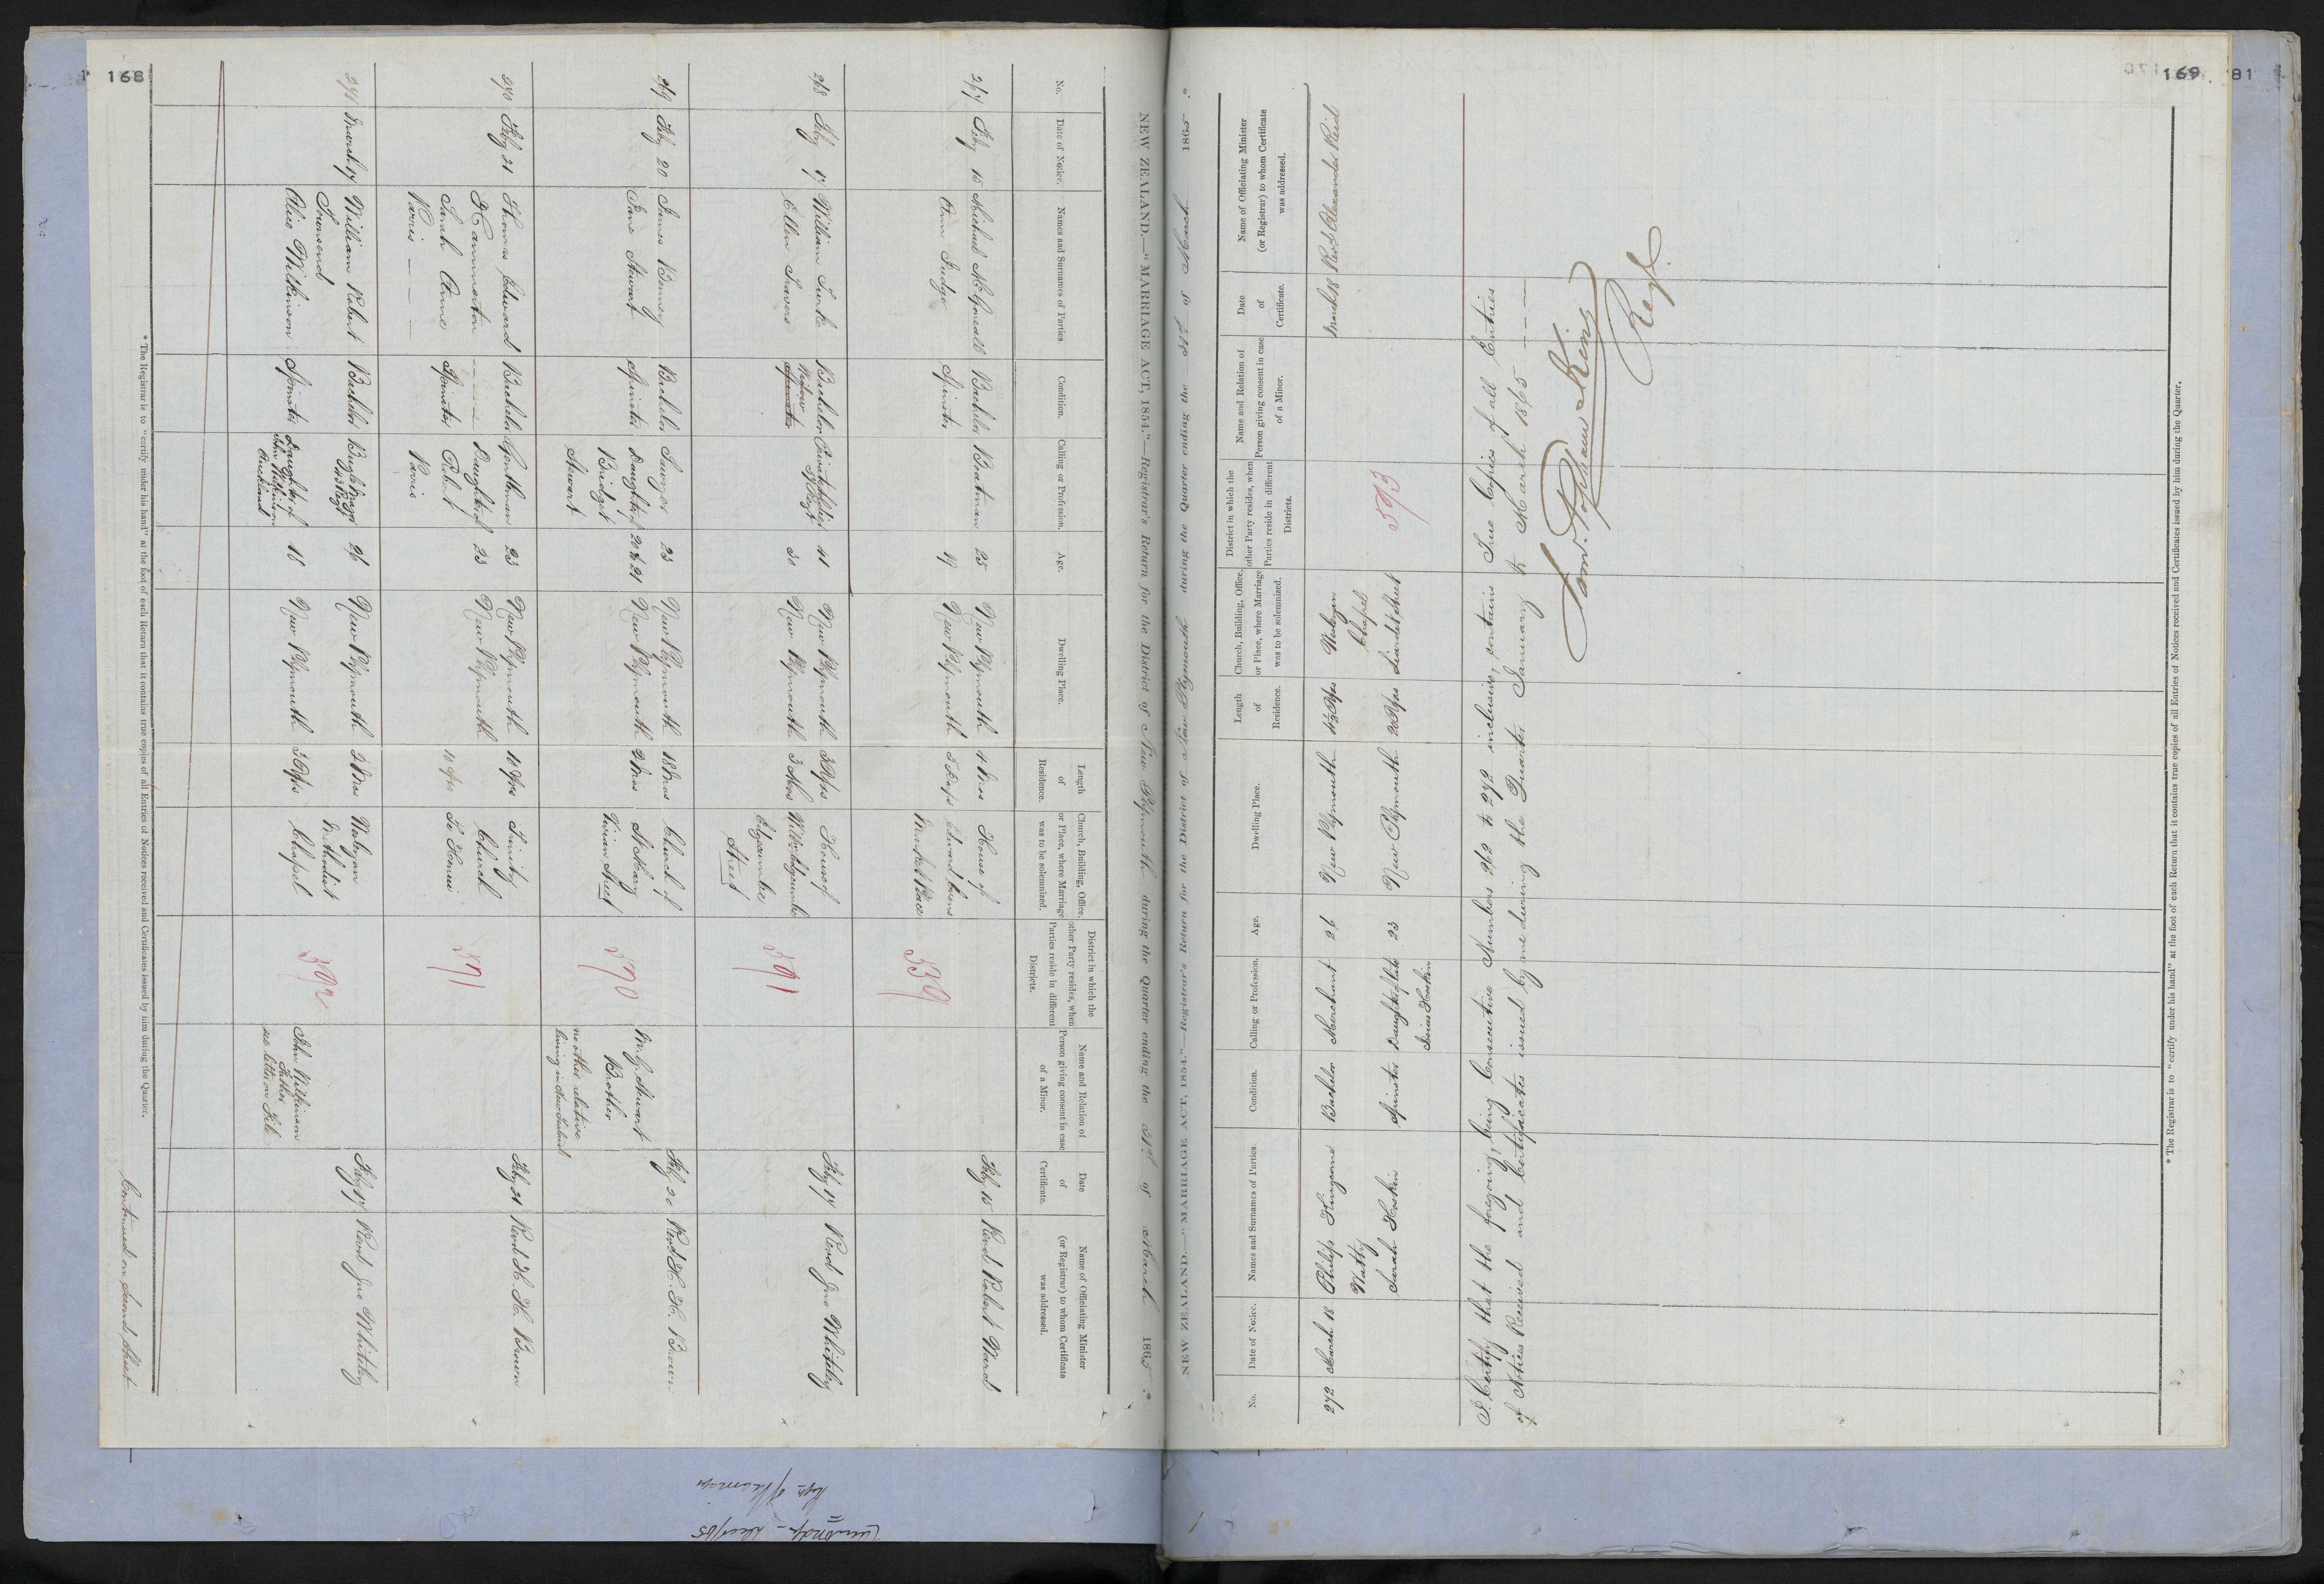 168
NEW ZEALAND.—"MARRIAGE ACT, 1854."—Registrar's Return for the District of New Plymouth during the Quarter ending the 31st of March 1865.*
No. | Date of Notice. | Names and Surnames of Parties. | Condition. | Calling or Profession. | Age. | Dwelling Place. | Length of Residence. | Church, Building, Office, or Place, where Marriage was to be solemnized. | District in which the other Party resides, when Parties reside in different Districts. | Name and Relation of Person giving consent in case of a Minor. | Date of Certificate. | Name of Officiating Minister (or Registrar) to whom Certificate was addressed.
267 Feby 15 Michael Bachelor Boatman 25 New Plymouth 4 Mos House of Feby 15 Revd Robert Ward
Ann Judge Spinster 19 New Plymouth 5 Edward
Market Place
539
268 Feby 17 William Bachelor Private Soldier 41 New Plymouth House of Feby 17 Revd Jno Whiteley
Ellen Travers Widow Spinster 30 New Plymouth 3
Street
591
269 Feby 20 James Bonney Bachelor Sawyer 23 New Plymouth 18 Mos Church of Feby 20 Revd H. H. Brown
Jane Stewart Spinster Daughter of 20 & 21 New Plymouth 2 Mos St Mary Stewart
Bridget Vivian Street Brother
Stewart no other relative
living in New Zealand
570
270 Feby 21 Thomas Edward Bachelor Gentleman 23 New Plymouth 10 Yrs Trinity Feby 21 Revd H. H. Brown
Hammerton Church
Sarah Anne Spinster Daughter of 23 New Plymouth 10 Yrs Te Henui
Parris Robert
Parris
571
271 March 17 William Robert Bachelor 26 New Plymouth Wesleyan Feby 17 Revd Jno Whiteley
Townsend 43 Regt Methodist
Alice Wilkinson Spinster Daughter of 18 New Plymouth 3 Yrs Chapel John Wilkinson
John Wilkinson Father
Auckland see letter on File
592
* The Registrar is to "certify under his hand" at the foot of each Return that it contains true copies of all Entries of Notices received and Certificates issued by him during the Quarter.
Continued on Second Sheet
169
81
NEW ZEALAND.—"MARRIAGE ACT, 1854."—Registrar's Return for the District of New Plymouth during the Quarter ending the 31st of March 1865.*
No. | Date of Notice. | Names and Surnames of Parties. | Condition. | Calling or Profession. | Age. | Dwelling Place. | Length of Residence. | Church, Building, Office, or Place, where Marriage was to be solemnized. | District in which the other Party resides, when Parties reside in different Districts. | Name and Relation of Person giving consent in case of a Minor. | Date of Certificate. | Name of Officiating Minister (or Registrar) to whom Certificate was addressed.
272 March 18 Philip Bachelor Merchant 26 New Plymouth Wesleyan March 18 Revd Alexander Reid
Watty Chapel
Sarah Hoskin Spinster Daughter of late 23 New Plymouth 20 Yrs Liardet Street
Hoskin
593
I Certify that the foregoing, being Consecutive Numbers 262 to 272 inclusive, contains True Copies of all Entries
of Notices Received and Certificates issued by me during the Quarter January to March 1865 — — —
Popham King
Regr.
* The Registrar is to "certify under his hand" at the foot of each Return that it contains true copies of all Entries of Notices received and Certificates issued by him during the Quarter.